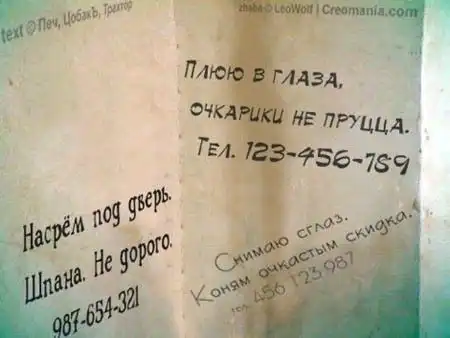 text © Печ, ЦобакЪ, Трахтор
zhaba © LeoWolf | Creomania.com
Плюю в глаза,
очкарики не пруцца.
Тел. 123-456-789
Насрём под дверь.
Шпана. Не дорого.
987-654-321
Снимаю сглаз.
Коням очкастым скидка.
тел. 456 123 987